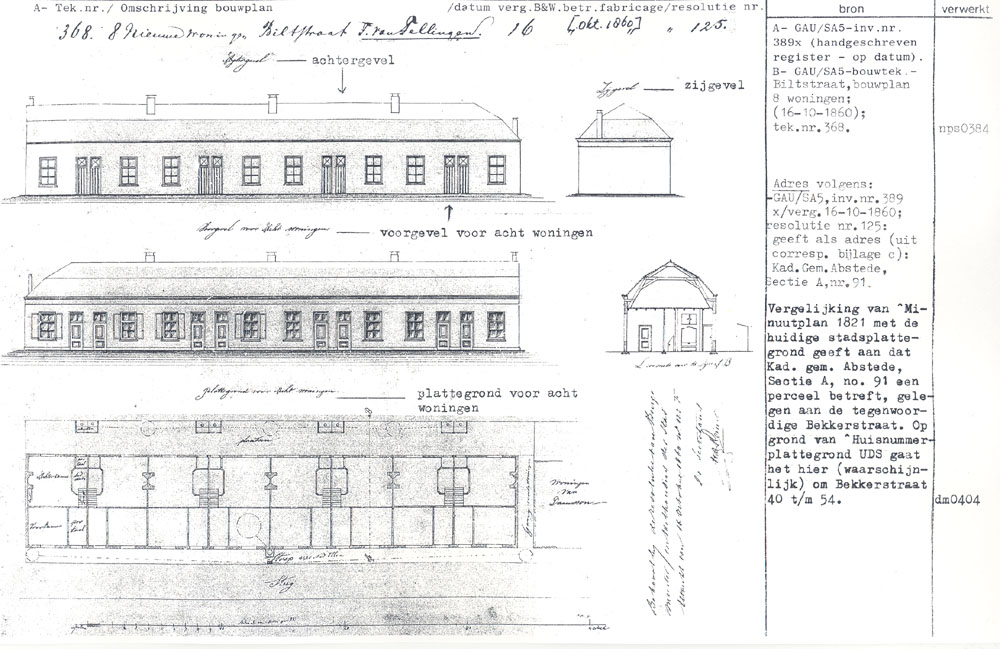 A- Tek.nr./ Omschrijving bouwplan /datum verg.B&W.betr.fabricage/resolutie nr.
368. 8 Nieuwe woningen Biltstraat F. van Tellingen. 16 [okt. 1860] " 125.
achtergevel
Zijgevel zijgevel
voorgevel voor acht woningen
plattegrond voor acht
woningen
Woningen
van
Straat
Steeg
bron
A- GAU/SA5-inv.nr.
389x (handgeschreven
register - op datum).
B- GAU/SA5-bouwtek.-
Biltstraat,bouwplan
8 woningen;
(16-10-1860);
tek.nr.368.
Adres volgens:
GAU/SA5,inv.nr.389
x/verg.16-10-1860;
resolutie nr.125:
geeft als adres (uit
corresp. bijlage c):
Kad.Gem.Abstede,
Sectie A,nr.91.
Vergelijking van ^Mi-
nuutplan 1821 met de
huidige stadsplatte-
grond geeft aan dat
Kad. gem. Abstede,
Sectie A, no. 91 een
perceel betreft, gele-
gen aan de tegenwoor-
dige Bekkerstraat. Op
grond van ^Huisnummer-
plattegrond UDS gaat
het hier (waarschijn-
lijk) om Bekkerstraat
40 t/m 54.
verwerkt
nps0384
dm0404